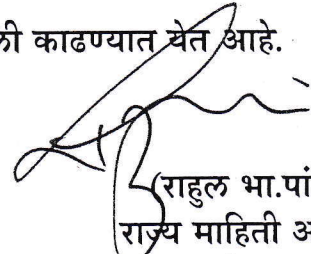 ली काढण्यात येत आहे.
(राहुल भा.पां
राज्य माहिती अ